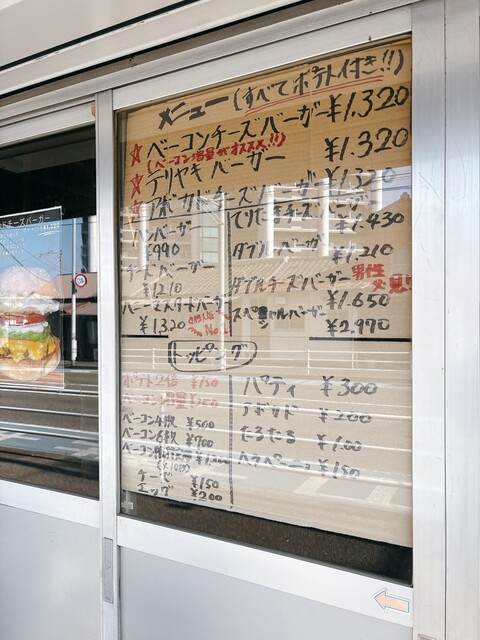 メニュー (すべてポテト付き!!)
☆ ベーコンチーズバーガー ¥1.320
(ベーコン増量がオススメ!!)
☆ テリヤキバーガー ¥1.320
☆ アボカドチーズバーガー ¥1.320
ハンバーガー
¥990
チーズバーガー
¥1210
¥1320
No.1
てりたまチーズバーガー
¥1.430
ダブルバーガー
¥1.210
ダブルチーズバーガー
男性必見!!
¥1.650
スペシャルバーガー
¥2.970
トッピング
ポテト2倍 ¥150
ベーコン増量 ¥250
ベーコン4枚 ¥500
ベーコン6枚 ¥700
ベーコン
(×10枚)
チーズ ¥150
エッグ ¥200
パティ ¥300
アボカド ¥200
たるたる ¥100
ハラペーニョ ¥150
チーズバーガー